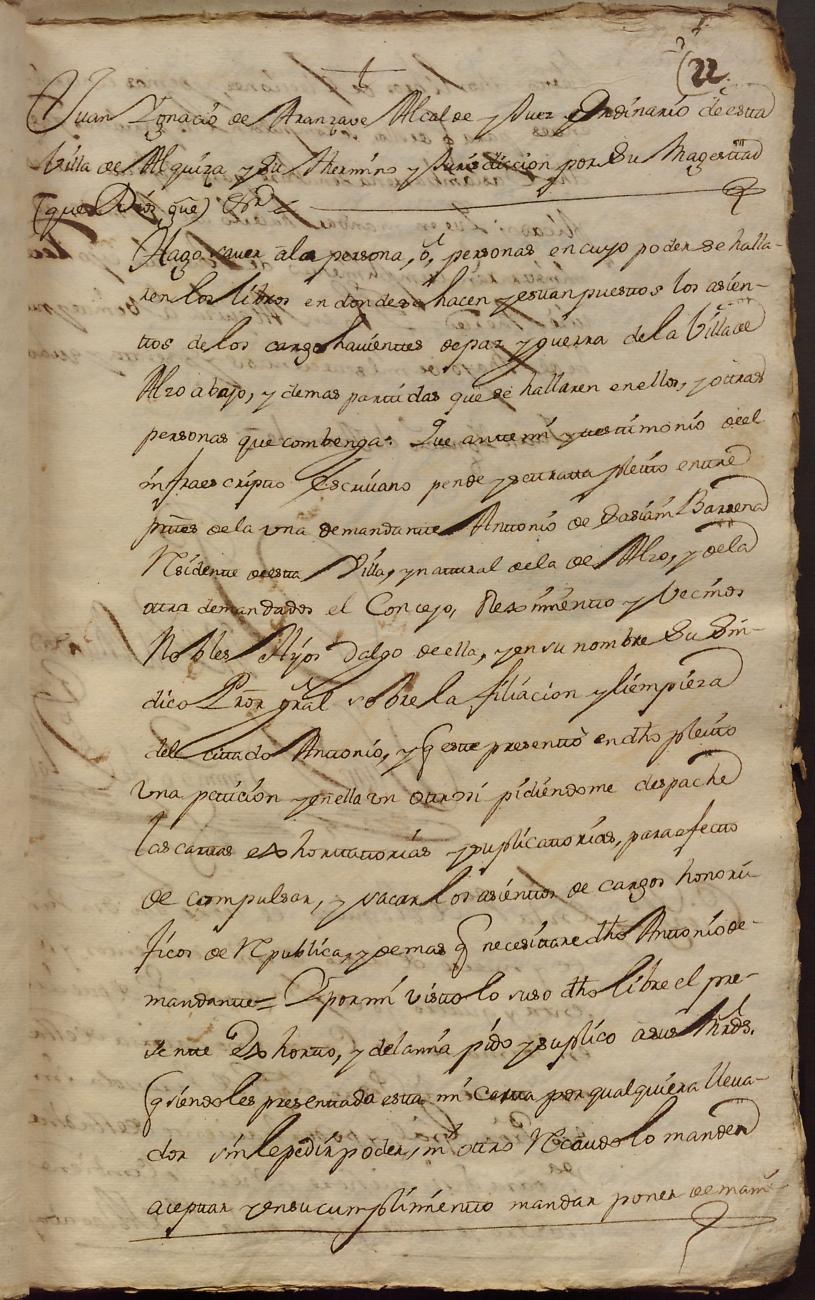 22
Juan Ygnacio de Aranzave Alcalde y Juez ordinario de esta
Villa de Alquiza, y su thermino y Jurisdiccion por su Magestad
(que Dios gu̅e) &ra =
Hago saver âla persona, ô, personas en cuyo poder se halla-
ren los libros en donde se hacen y estan puestos los asien-
tos de los cargohavientes de paz y guerra de la Villa de
Alzo abajo, y demas partidas que se hallaren en ellos, y otras
personas que combenga. Que ante mi y testimonio de el
infraescripto escrivano pende y se tratta pleito entre
ptes de la una demandante Antonio de Sasiam Barrena
Residente de esta Villa, y natural de la de Alzo, y de la
otra demandados el Concejo, Reximiento y vecinos
Nobles Hijos dalgo de ella, y en su nombre su Sin-
dico Pror gral sobre la filiacion y liempieza
del citado Antonio, y q este presentó en dho pleito
una peticion y en ella un otrosi pidiendome despache
las cartas exhortatorias y suplicatorias, para efecto
de compulsar, y sacar los asientos de cargos honori-
ficos de Republica, y demas q necesitare dho Antonio de-
mandante = Y por mi visto lo suso dho libre el pre-
sente Exhorto, y de la mia pido y suplico a sus Mrds.
q siendoles presentada esta mi carta por qualquiera lleva-
dor sin le pedir poder, ni otro Recaudo lo manden
aceptar y en su cumplimiento mandar poner de mani-